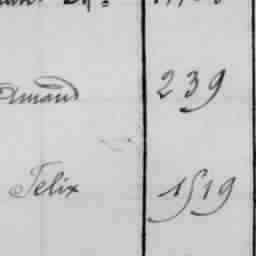 Amand 239
Felix 1519